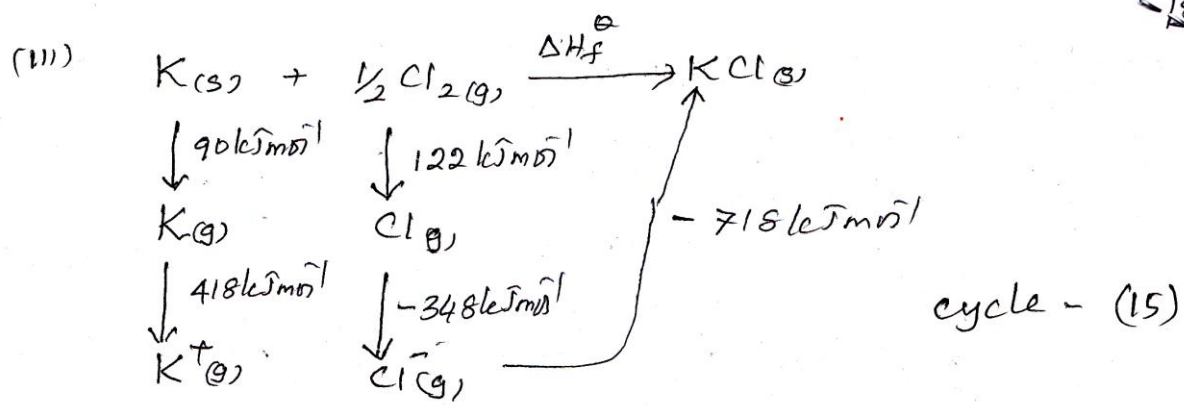 (III)
K(s) + 1/2 Cl2(g) ΔHf⊖ → KCl(s)
↓ 90 kJmol⁻¹ ↓ 122 kJmol⁻¹
K(g) Cl(g) - 718 kJmol⁻¹
↓ 418 kJmol⁻¹ ↓ -348 kJmol⁻¹ cycle - (15)
K⁺(g) Cl⁻(g)